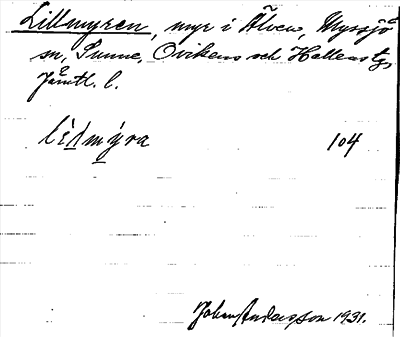 Lillmyren, myr i Älven, Myssjö
sn, Sunne, Ovikens och Hallens tg,
Jämtl. l.
lìlmýra 104
Johan Andersson 1931.